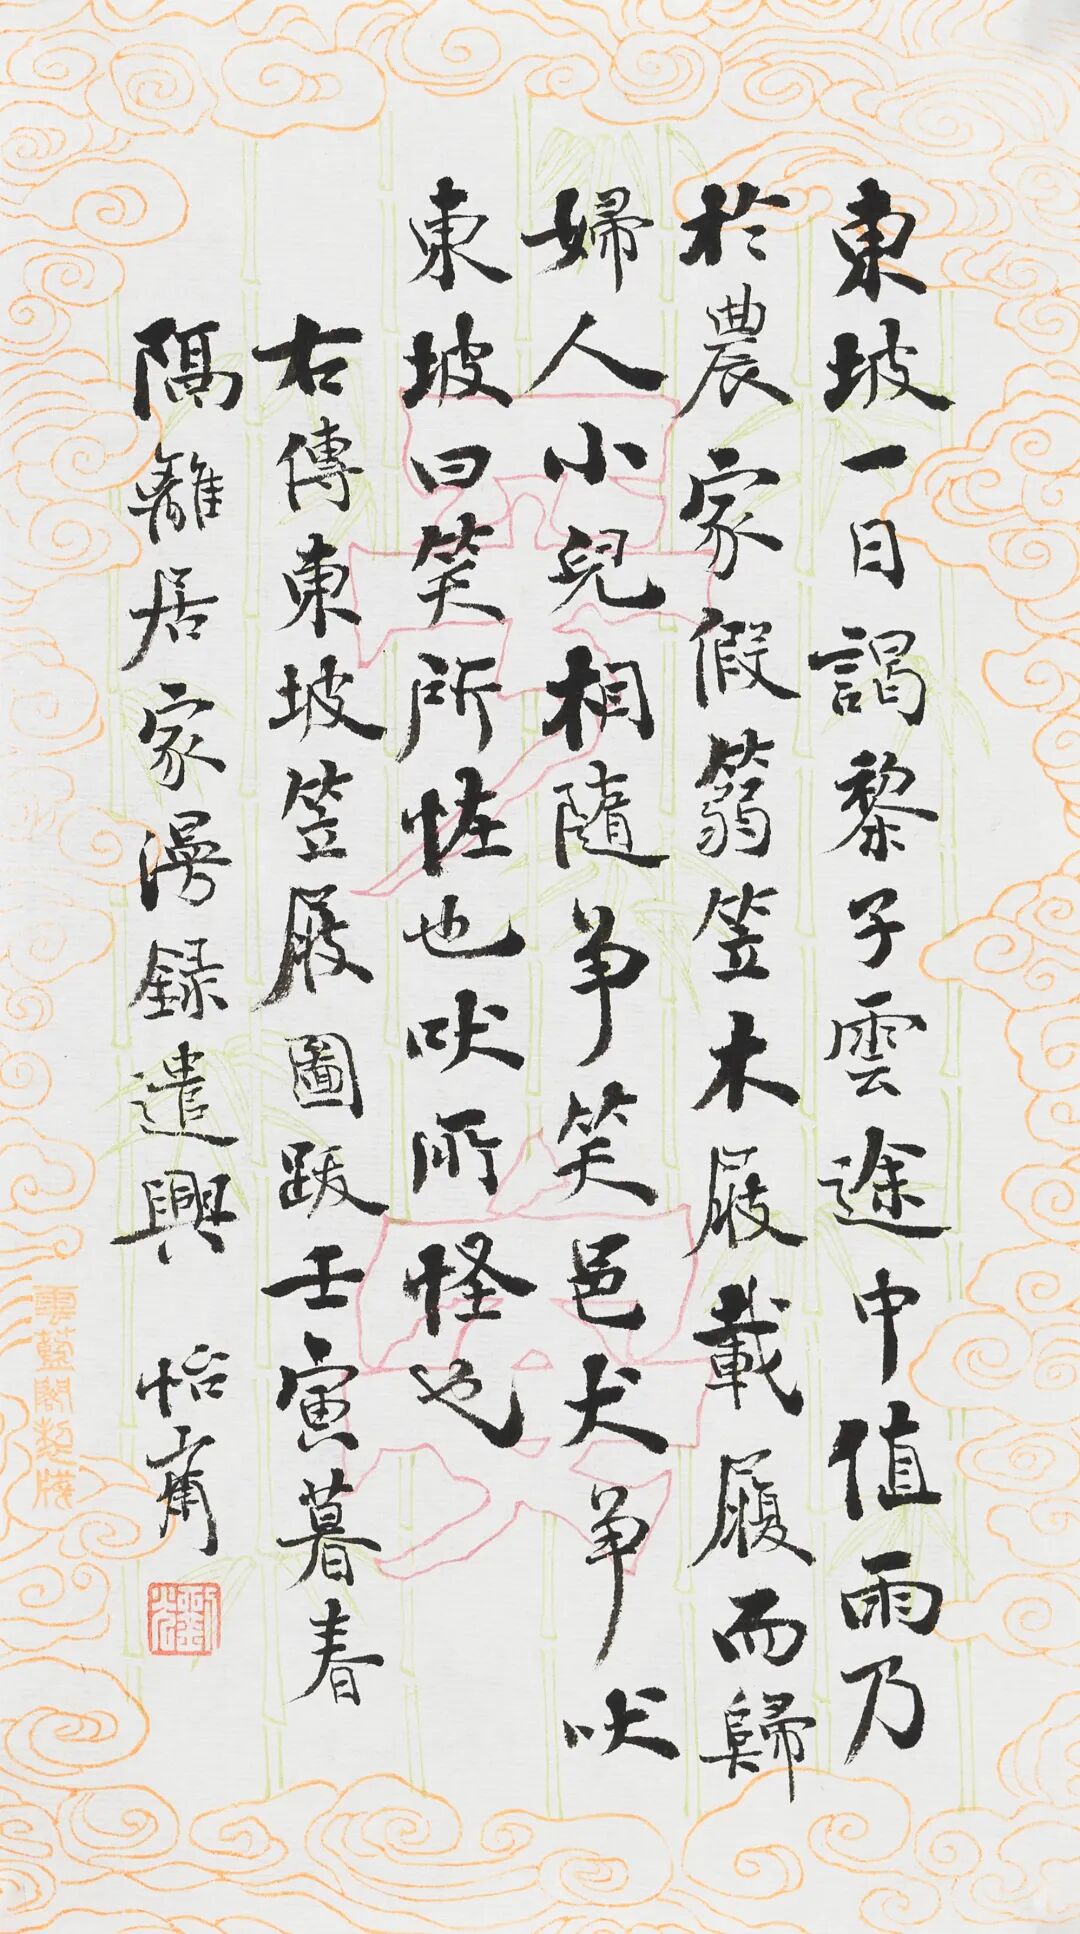 東坡一日謁黎子雲途中值雨乃
於農家假篛笠木屐載履而歸
婦人小兒相隨争笑邑犬争吠
東坡曰笑所怪也吠所怪也
右傳東坡笠屐圖跋壬寅暮春
隔離居家漫録遣興 怡齋
雲藍閣製牋